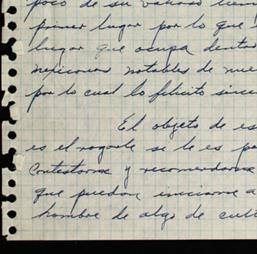 poco de su valioso tiem
primer lugar por lo que
lugar que ocupa dentro
mexicanos notables de nue
por lo cual lo felicito since
El objeto de es
es el rogarle se le es po
contestarme y recomendarme
que puedan iniciarme a
hombre de algo de cult